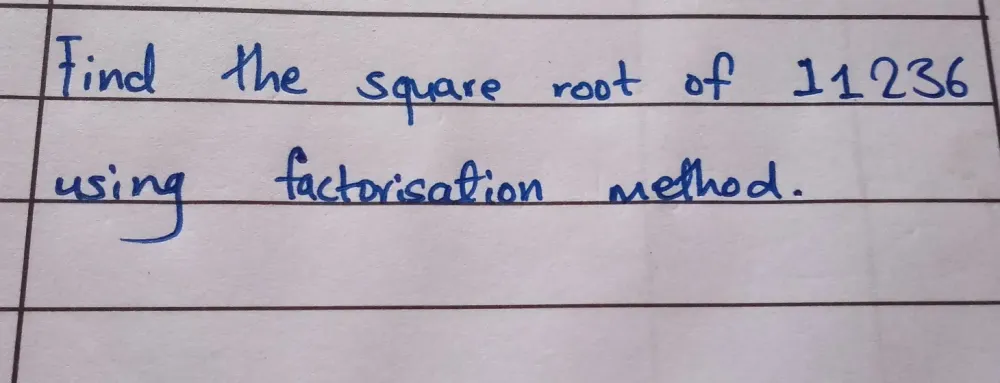 Find the square root of 11236
using factorisation method.